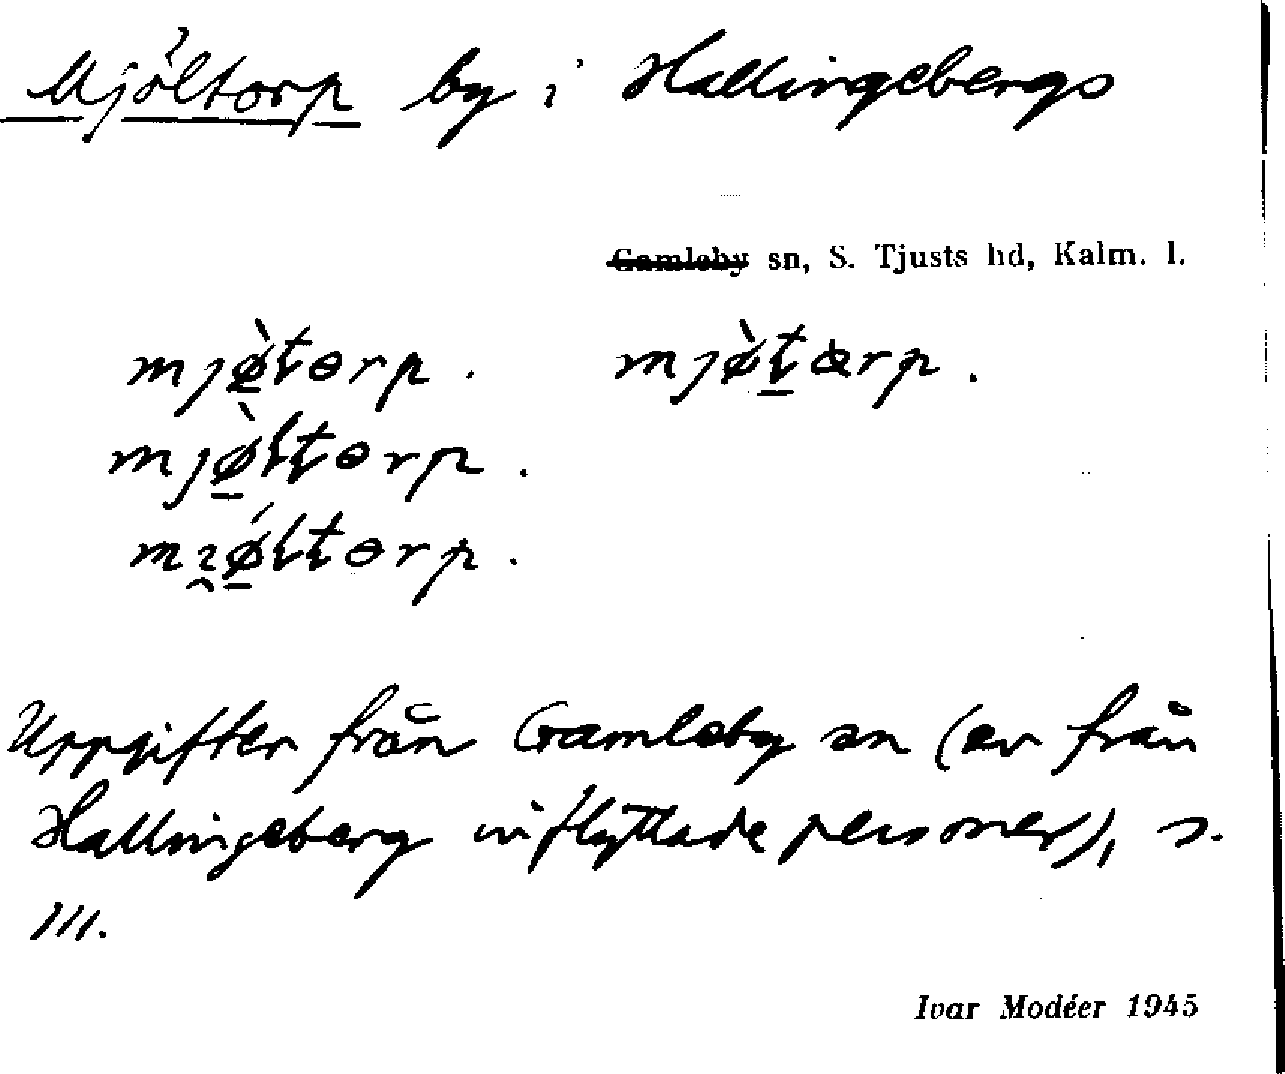 Mjöltorp by i Hallingebergs
Gamleby sn, S. Tjusts hd, Kalm. l.
mjø̀tɵrp. mjø̀tærp.
mjø̀ltɵrp.
mı̯ǿltɵrp.
Uppgifter från Gamleby sn (av från
Hallingeberg inflyttade personer), s.
111.
Ivar Modéer 1945